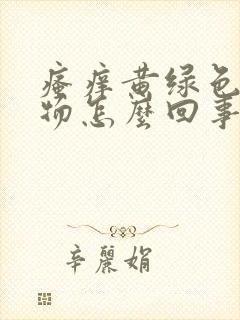 瘙痒黄绿色
物怎麼回事
辛麗娟